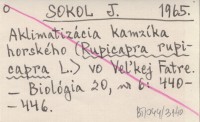 SOKOL J. 1965.
Aklimatizácia kamzíka
horského (Rupicapra rupi-
capra L.) vo Veľkej Fatre.
– Biológia 20, no 6: 440–
–446.